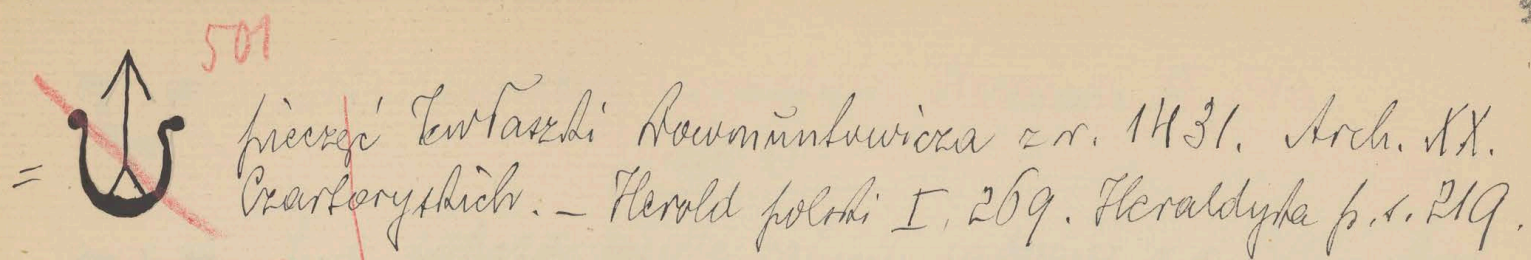 501
= pieczęć Iwaszki Dowmuntowicza z r. 1431. Arch. XX.
Czartoryskich. – Herold polski I, 269. Heraldyka p. s. 219.